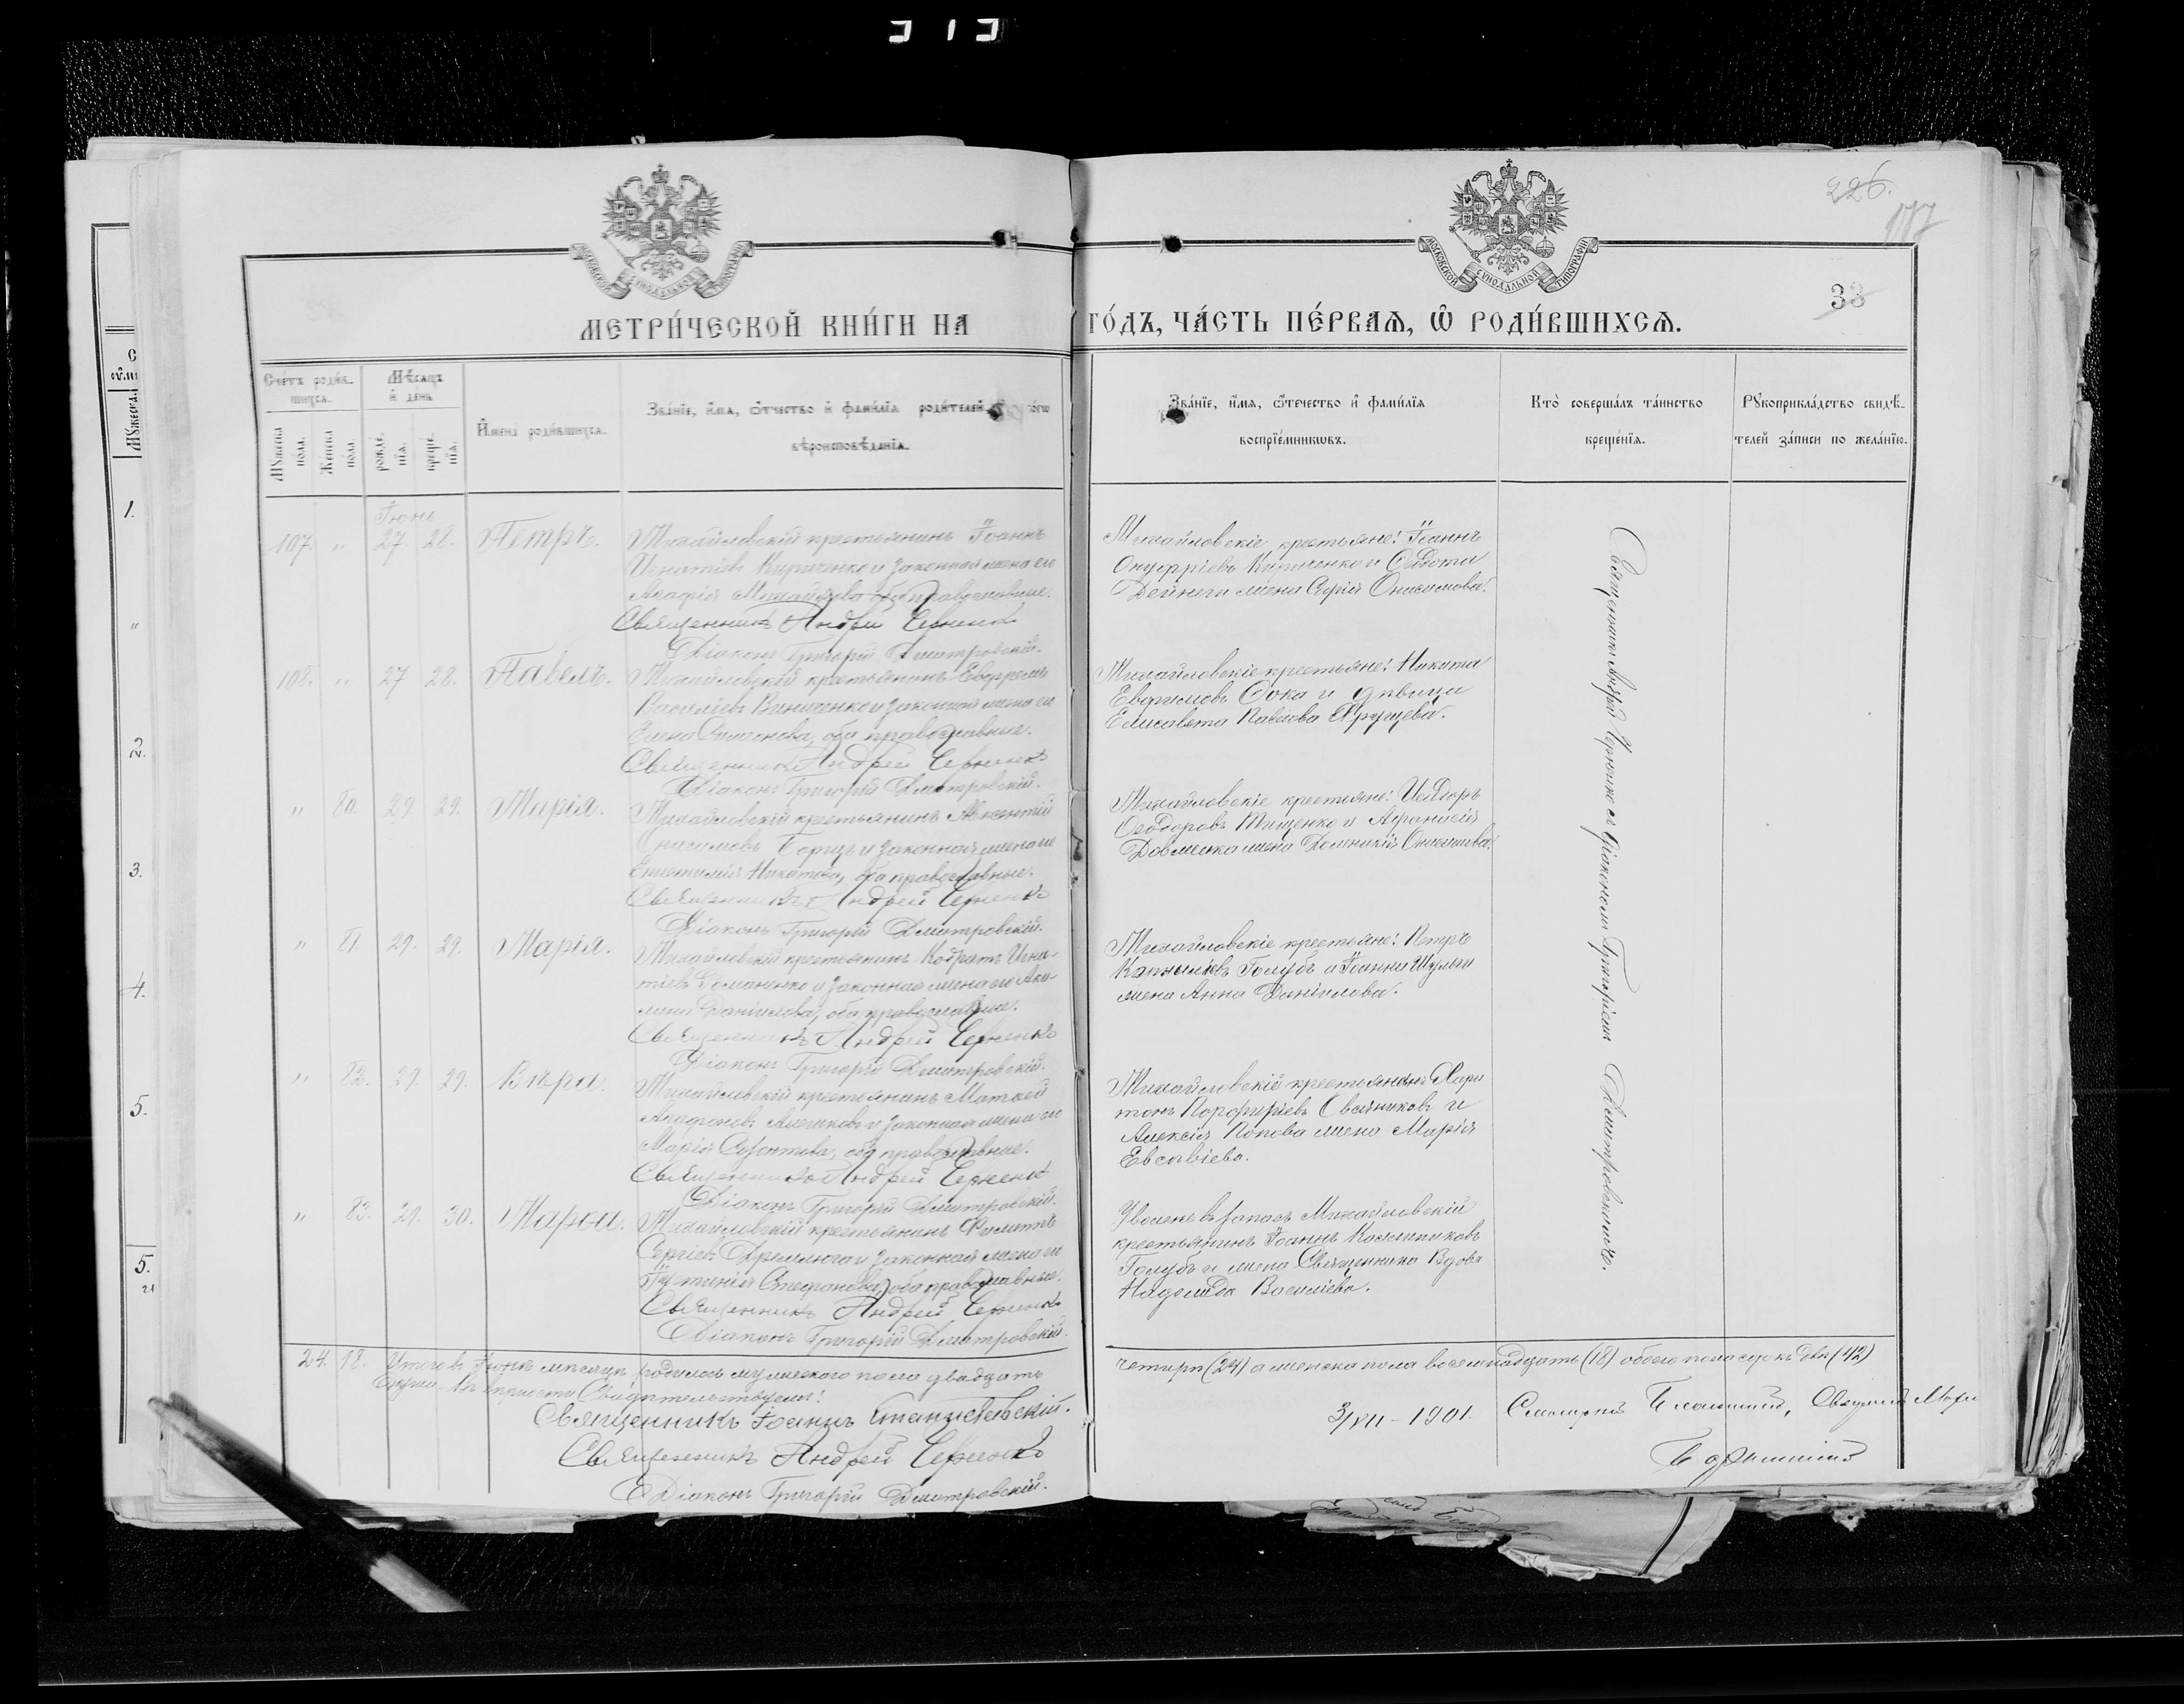 313
226.
117
33
МОСКОВСКОЙ СУНОДАЛЬНОЙ ТИПОГРАФІИ
МОСКОВСКОЙ СУНОДАЛЬНОЙ ТИПОГРАФІИ
МЕТРИ́ЧЕСКОЙ КНИ́ГИ НА
ГО́ДЪ, ЧА́СТЬ ПЕ́РВАѦ, Ѽ РОДИ́ВШИХСѦ.
Сче́тъ роди́в-
шихсѧ.
Мꙋ́жеска по́ла.
Же́нска по́ла.
Мѣ́сѧцъ и де́нь
рожде́нїѧ.
креще́нїѧ.
И҆мена̀ роди́вшихсѧ.
Зва́нїе, и҆́мѧ, ѻ҆́тчество и҆ фамі́лїѧ роди́телей,
вѣроисповѣ́данїѧ.
Зва́нїе, и҆́мѧ, ѻ҆те́чество и҆ фамі́лїѧ
воспрїе́мникѡвъ.
Кто̀ соверша́лъ та́инство
креще́нїѧ.
Рꙋкоприкла́дство свидѣ́-
телей за́писи по жела́нїю.
Іюнь
107. " 27. 28. Петръ.
Михайловскій крестьянинъ Іоаннъ
Игнатіевъ Кириченко и законная жена его
Агафія Михайлова оба православные.
Священникъ Андрей Черненко
Діаконъ Григорій Димитровскій.
Михайловскіе крестьяне: Іоаннъ
Онуфріевъ Кириченко и Ѳедота
Дейнеги жена Софія Онисимова.
108. " 27 28. Павелъ.
Михайловскій крестьянинъ Евфремъ
Василіевъ Винниченко и законная жена его
Елена Симеонова, оба православные.
Священникъ Андрей Черненко
Діаконъ Григорій Димитровскій.
Михайловскіе крестьяне: Никита
Евфимовъ Сока и дѣвица
Елисавета Павлова
" 80. 29. 29. Марія.
Михайловскій крестьянинъ Авксентій
Онисимовъ Борщъ и законная жена его
Епистимія Никитова, оба православные.
Священникъ Андрей Черненко
Діаконъ Григорій Димитровскій.
Михайловскіе крестьяне: Исидоръ
Ѳеодоровъ Тищенко и Аѳанасія
Довженка жена Домникія Онисимова.
" 81. 29. 29. Марія.
Михайловскій крестьянинъ Кодратъ Игна-
тіевъ Романенко и законная жена его Аки-
лина Даніилова, оба православные.
Священникъ Андрей Черненко
Діаконъ Григорій Димитровскій.
Михайловскіе крестьяне: Петръ
Корниліевъ Голубъ и Іоанна Шульги
жена Анна Даніилова.
" 82. 29. 29. Вѣра.
Михайловскій крестьянинъ Матѳей
Агафоновъ и законная жена его
Марія Созонтова, оба православные.
Священникъ Андрей Черненко
Діаконъ Григорій Димитровскій.
Михайловскій крестьянинъ Хари
тонъ Порфиріевъ Овсянниковъ и
Алексія Попова жена Марія
Евсевіева.
" 83. 29. 30. Марѳа.
Михайловскій крестьянинъ Филиппъ
Сергіевъ и законная жена его
Іустинія Стефанова, оба православные.
Священникъ Андрей Черненко
Діаконъ Григорій Димитровскій.
Уволенъ въ запасъ Михайловскій
крестьянинъ Іоаннъ
Голубъ и жена Священника Вдова
Надежда Василіева.
Священникъ Андрей Черненко съ діакономъ Григоріемъ Димитровскимъ.
24. 18. Итого въ Іюнѣ мѣсяцѣ родилось мужескаго пола двадцать
четыре (24) а женска пола восемнадцать (18) обоего пола сорокъ два (42)
Свидѣтельствуемъ:
Священникъ Іоаннъ Станиславскій.
Священникъ Андрей Черненко
Діаконъ Григорій Димитровскій.
3/VII - 1901.
1.
"
2.
3.
4.
5.
5.